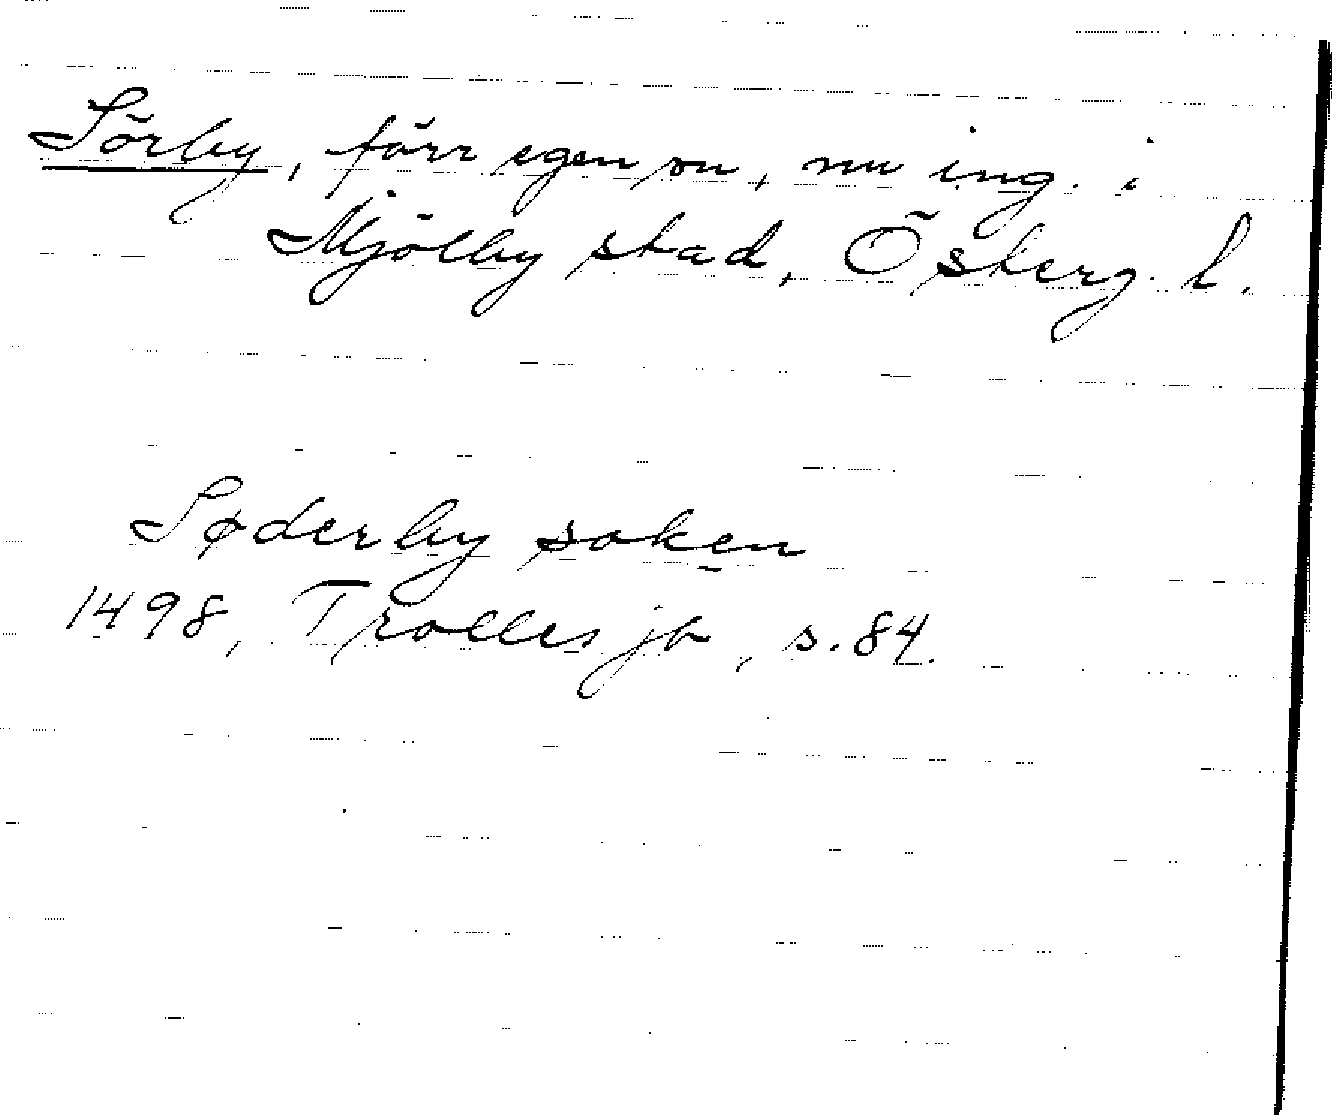 Sörby, förr egen sn, nu ing. i
Mjölby stad, Österg. l.
Søderby soken
1498, Trolles jb, s. 84.